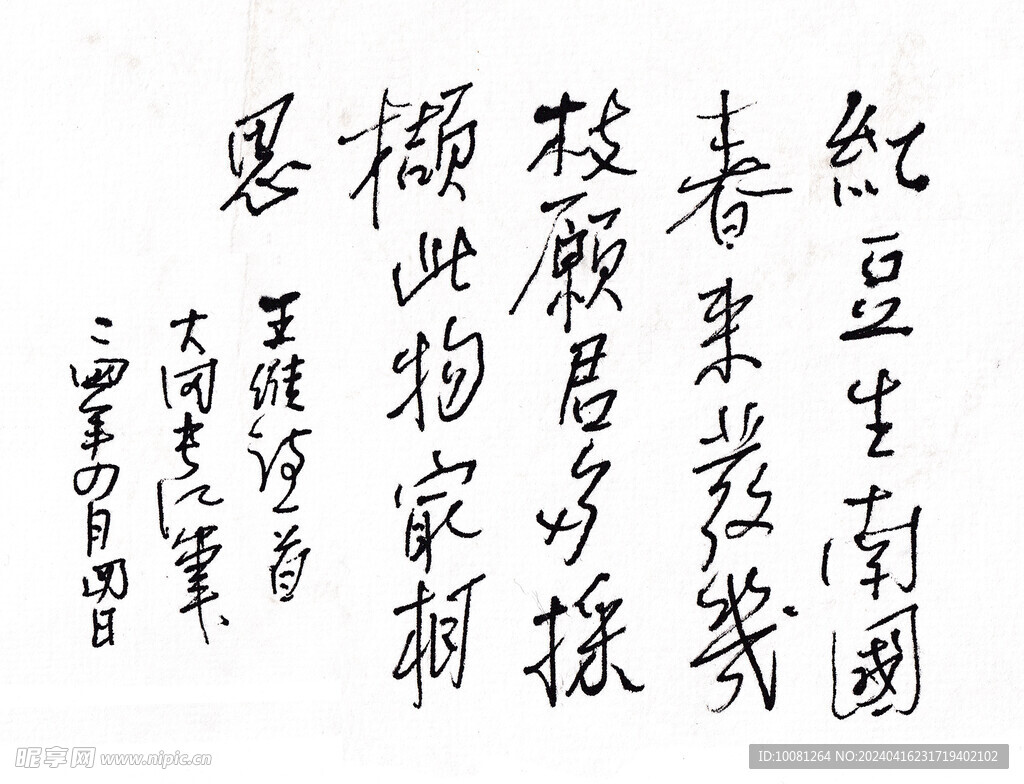 紅豆生南國
春來發幾
枝願君多採
擷此物最相
思
王維詩一首
大河長江筆
二〇四年九月四日
昵享网 www.nipic.cn
ID:10081264 NO:20240416231719402102